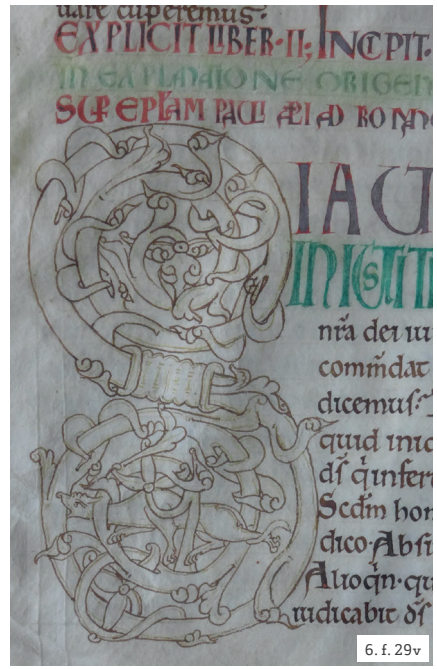 uare cuperemus.
EXPLICIT LIBER·II; INCIPIT·
IN EXPLANATIONE ORIGEN
SUP EPLAM PAULI APLI AD ROMAN
SI AUT
INIUSTIT
nr̄a dei iu
com̄dat
dicemus:
quid iniq
d̄s q̇ infert
Scd̄m hom
dico· Absi
Alioq̇n· qu
iudicabit d̄s
6. f. 29v